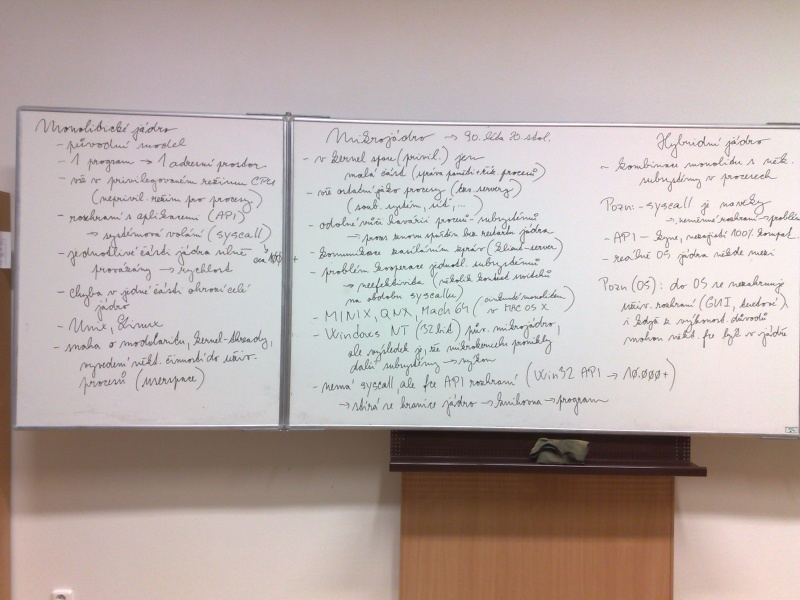 Monolitické jádro
- původní model
- 1 program → 1 adresní prostor
- vše v privilegovaném režimu CPU
(neprivil. režim pro procesy)
- rozhraní s aplikacemi (API)
→ systémová volání (syscall)
- jednotlivé části jádra silně
provázány → rychlost
- chyba v jedné části ohrozí celé
jádro
- Unix, Linux
- snaha o modularitu, kernel-thready,
vyvedení někt. činností do uživ.
procesů (userspace)
Mikrojádro → 90. léta 20. stol.
- v kernel space (privil.) jen
malá část (správa paměti + říz. procesů)
- vše ostatní jako procesy (tzv. servery)
(soub. systém, sítě, ...)
- odolné vůči havárii procesů - subsystémů
→ proces znovu spuštěn bez restartu jádra
- komunikace zasíláním zpráv (klient-server)
- problém kooperace jednotl. subsystémů
→ neefektivita (několik context switchů
na obdobu syscallu)
- MINIX, QNX, Mach 64 (monolitem v MAC OS X)
- Windows NT (32bit) pův. mikrojádro,
ale výsledek je, že mikrokernelu pronikly
další subsystémy → výkon
- nemá syscall, ale fce API rozhraní (Win32 API → 10.000+)
→ stírá se hranice jádro → knihovna → program
Hybridní jádro
- kombinace monolitu s někt.
subsystémy v procesech
Pozn: - syscall je navěky
→ neměnné rozhraní → problém
- API - kyne, nezajistí 100% kompat.
- reálné OS jádra někde mezi
Pozn (OS): do OS se nezahrnuje
uživ. rozhraní (GUI, textové),
i když z výkonnost. důvodů
mohou někt. fce být v jádře